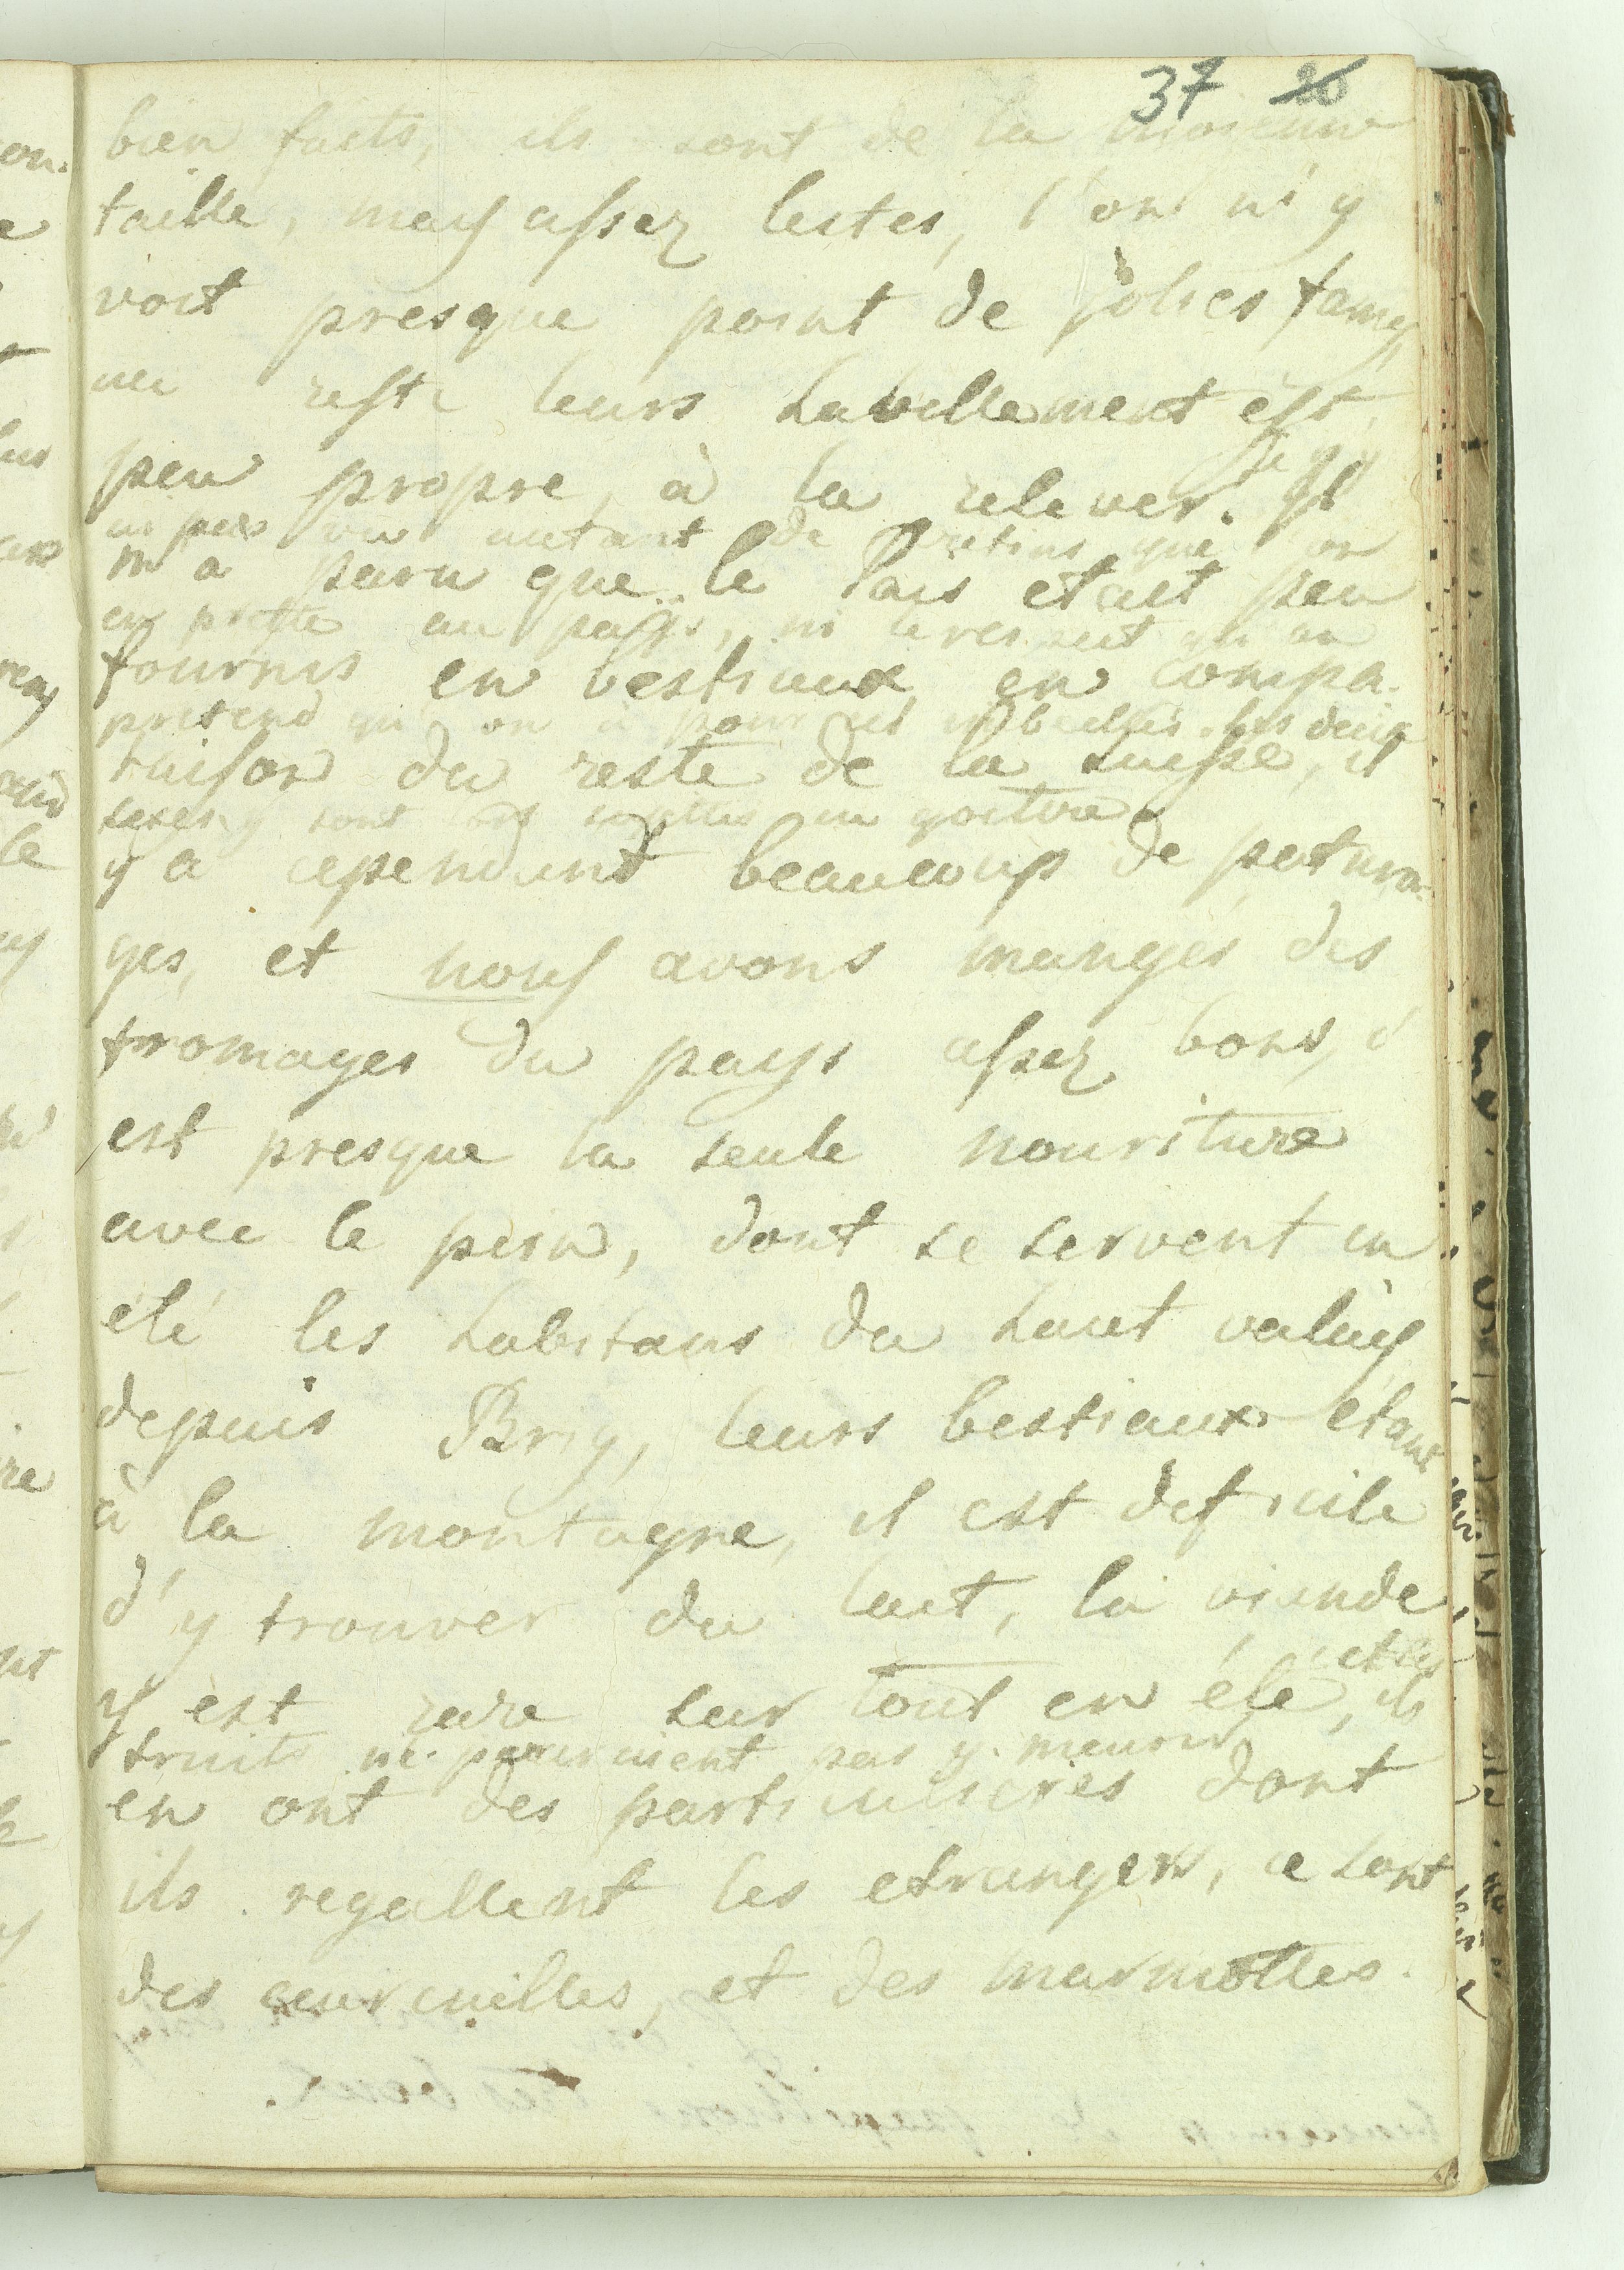 37 20
bien faits, ils sont de la moienne
taille, mais assez lestes, l'on n'y
voit presque point de jolies fames
du reste leurs habillement est
peu propre, à la relever. Il
Je n'y
ai pas vu autant de cretins que l'on
m'a paru que le Pais etait peu
en prette au pays,
fournis en bestiaux en compa-
pretend qu'on a pour ces imbecilles. les deux
raison du reste de la suisse, il
sexes y sont sujettes au goitre.
y a cependant beaucoup de patura-
ges, et nous avons mangés des
fromages du pays assez bons, c'
est presque la seule nouriture
avec le pain, dont se servent en
été les habitans du haut valais
depuis Brig, leurs bestiaux étant
à la montagne, il est deficile
d'y trouver du lait, la viande
y est rare sur tout en été, ils
et les
fruits ne pouraient pas y meurir
en ont des particulieres dont
ils regallent les etrangers, ce sont
des ecureuilles, et des marmottes.